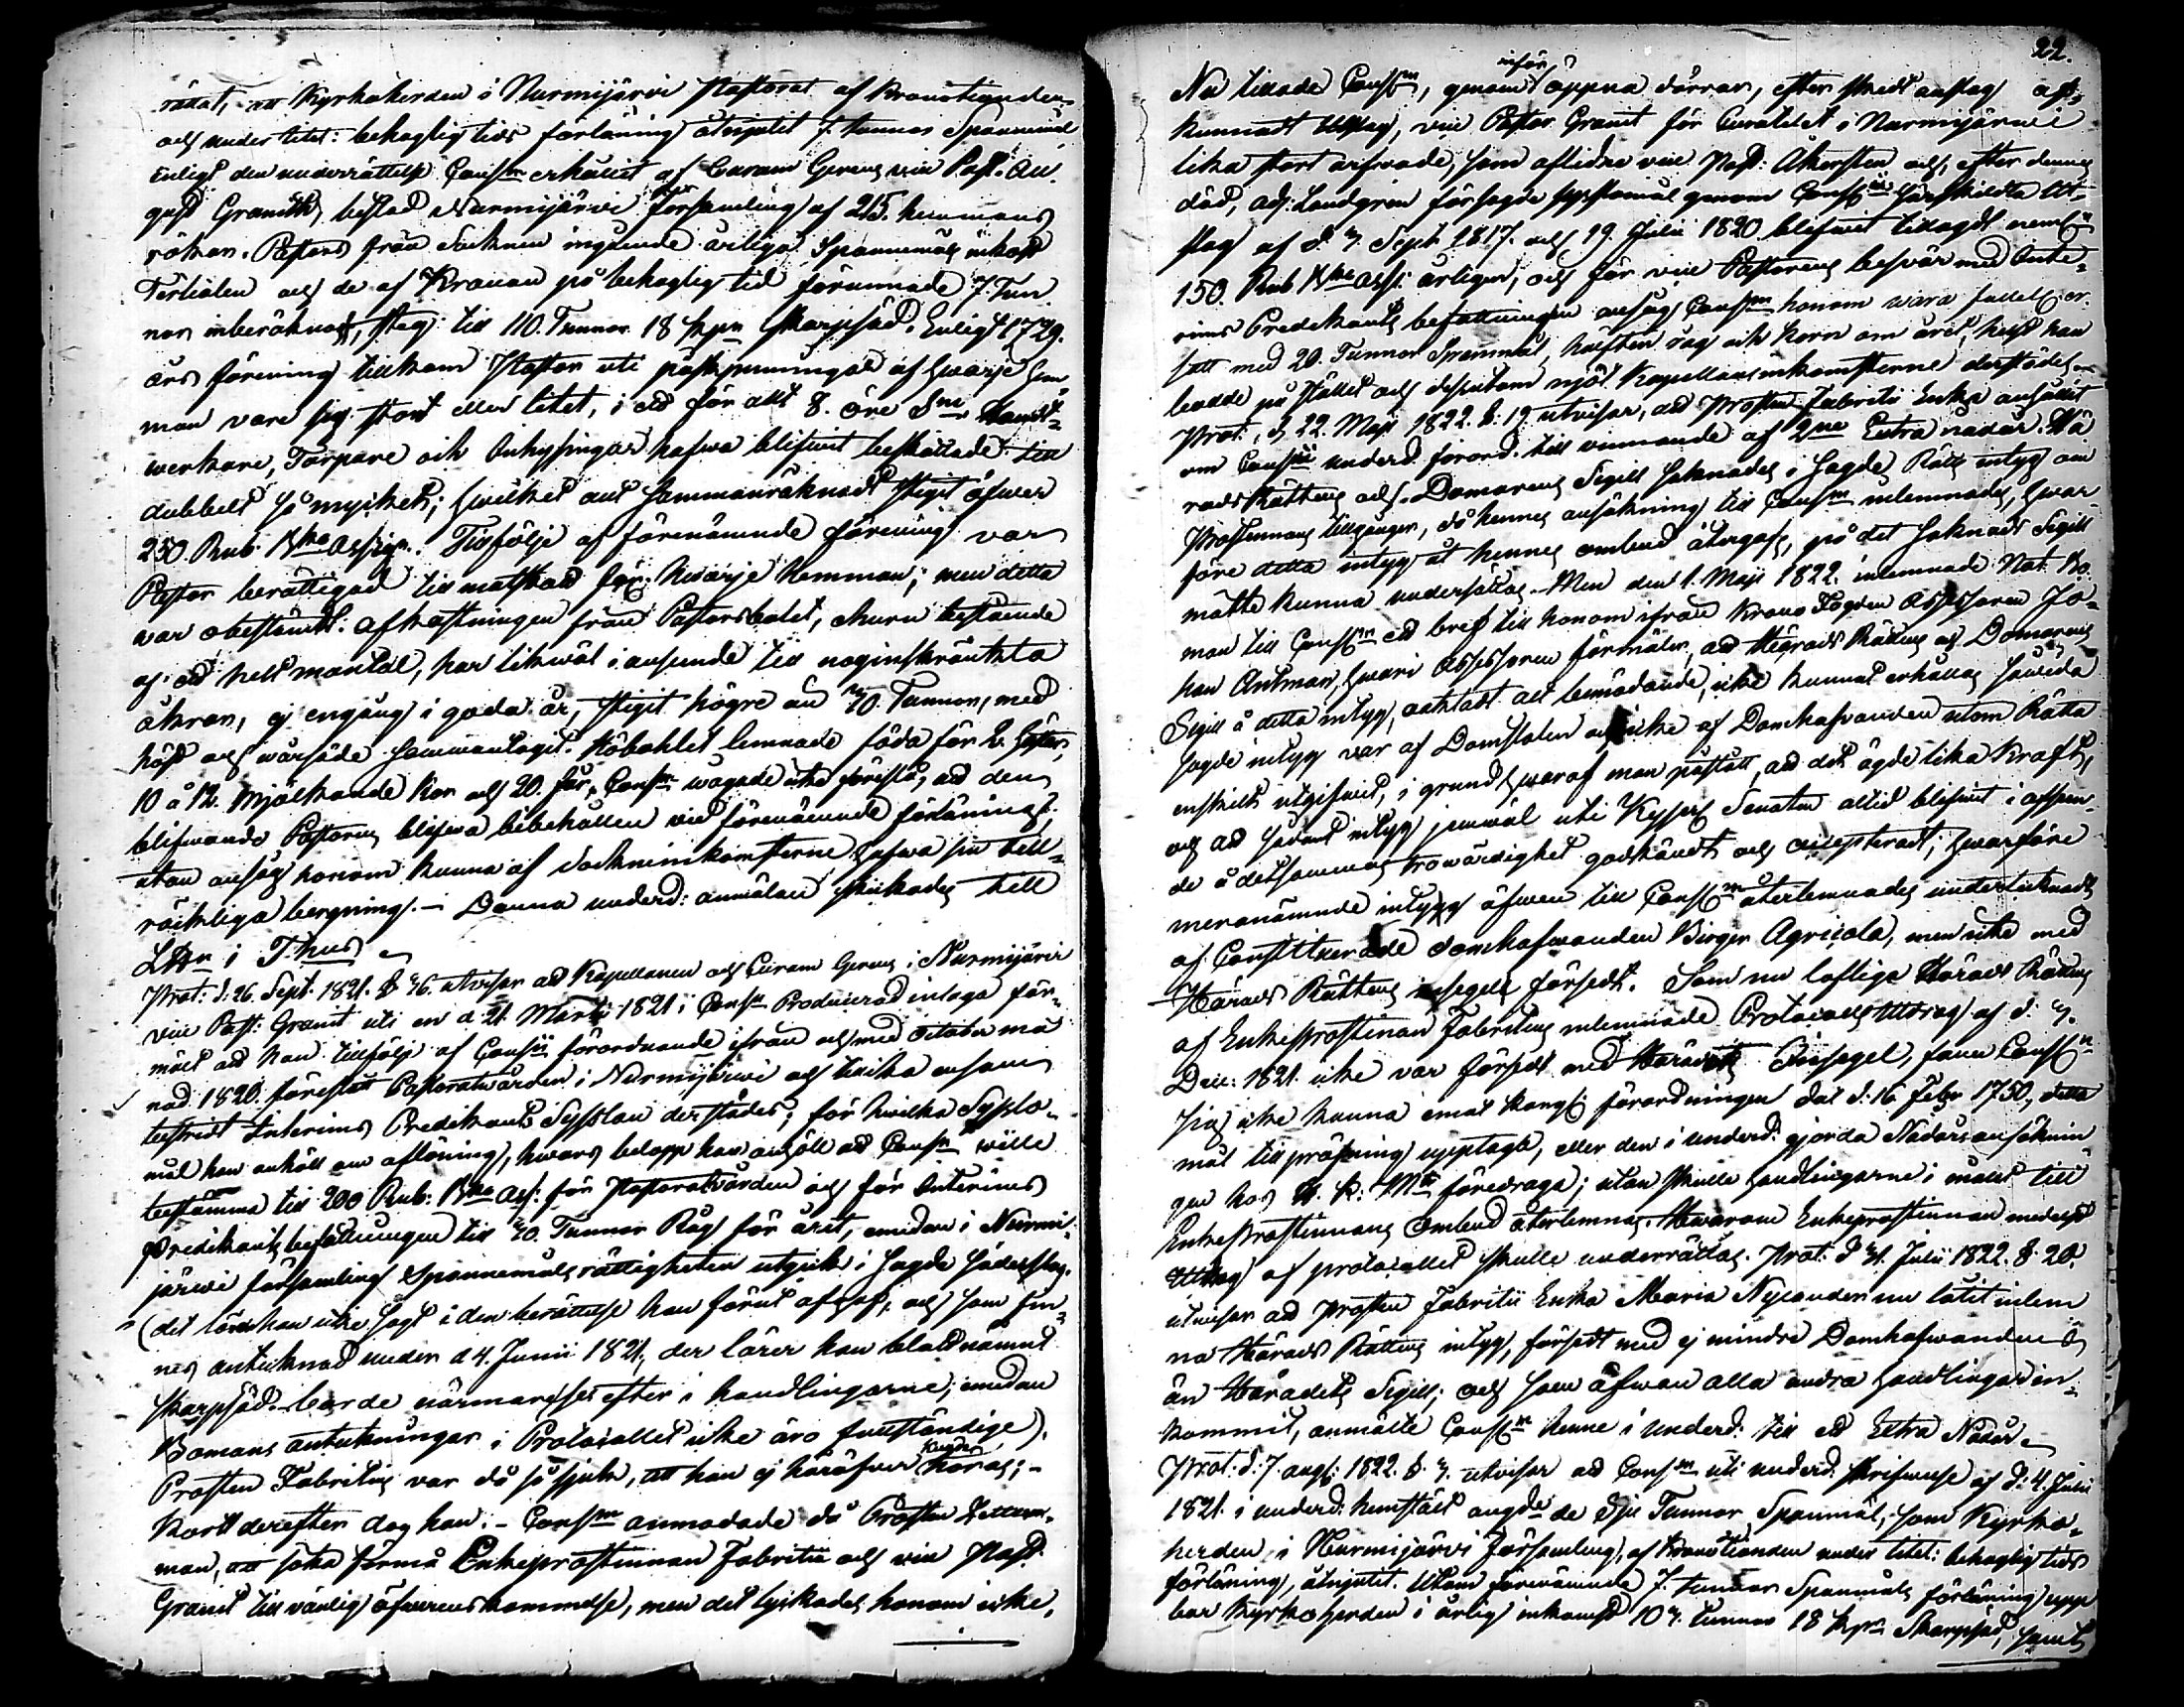 rådat, att Kyrkoherden i Nurmijärvi Pastorat af Kronotionden
och under titel: behaglig tids förläning åtnjutit 7. tunnor Spannemål
Enligt den underrättelse Cons:m erhållit af Curam Gerens vice Past. Au-
gust Granith, bestod Nurmijärvi församling af 215. hemmans
rökar. Pastors från Socknen ingående årliga Spannemåls inkomst
Tertialen och de af Kronan på behaglig tid förunnade 7 Tun-
nor inberäknad, steg till 110. Tunnor 18 kpr Skarpsäd. Enligt 1729.
års förening tillkom Pastor uti påskpenningar af hwarje hem-
man vare sig stort eller litet, i ett för allt 8. öre S:mt Handt-
werkare, Torpare och Inhysingar hafwa blifwit beskattade till
dubbelt så mycket; hwilket allt sammanräknadt stigit öfwer
250. Rub. B:ko Assign. Tillfölje af förenämnde förening var
Pastor berättigad till matskott för hwarje hemman; men detta
war obestämdt. Afkastningen från Pastorsbolet, ehuru bestående
af ett helt mantal, har likwäl i anseende till noginskränkta
åkrar, ej engång i goda år, stigit högre än 70. Tunnor, med
höst och wårsäde sammantagit. Höbohlet lemnade föda för 2. hästar,
10 à 12. Mjölkande Kor och 20. får. Cons:m wågade icke föreslå, att den
blifwande Pastorn blifwa bibehållen vid förenämnde förläning,
utan ansåg honom kunna af Sockneinkomsterne hafwa sin till-
räckliga bergning. – Denna underd: anmälan skickades till
LBr:n i T:hus
Prot: d. 26. Sept. 1821. § 76. utvisar att Kapellanen och Curam Gerens i Nurmijärvi
vice Past: Granit uti en d 21. Martii 1821 i Cons:m Producerad inlaga för-
mält att han tillfölje af Cons:ii förordnande ifrån och med October må-
nad 1820. förestått Pastoratvården i Nurmijärwi och tillika ensam
bestridt Interims Predikants Sysslan derstädes; för hwilka Syslo-
mål han anhöll om aflöning, hwars belopp han anhöll att Cons:m wille
bestämma till 200 Rub: B:ko Ass: för Pastoratvården och för Interims
Predikants befattningen till 20. Tunnor Råg för året, emedan i Nurmi-
järwi församling Spannemåls rättigheten utgick i sagde sädesslag.
(det lärer han icke sagt i den berättelse han förut afgaf, och som fin-
nes antecknad under d 4. Junii 1821, der lärer han blott nämnt
Skarpsäd. borde närmare ses efter i handlingarne; emedan
Bomans anteckningar i Protocollet icke äro fullständige).
Prosten Fabritius var då så sjuk, att han ej häröfwer kunde höras; –
kort derefter dog han. – Cons:m anmodade då Prosten Zetter-
man, att söka förmå Enkeprostinnan Fabritii och vice Past.
Granit till vänlig öfwerenskommelse, men det lyckades honom icke.
22.
Nu tillade Cons:m, genom inför öppna dörrar, efter skedt anslag af-
kunnadt Utslag, vice Pastor Granit för Curatelet i Nurmijärwi
lika stort arfwode, som aflidne vice Past: Åkersten och, efter dennes
död, Adj: Landgren för sagde sysslomål genom Cons:ii särskildta Ut-
slag af d. 3. Sept 1817. och 19. Julii 1820 blifwit tillagdt nemln
150. Rub B:ko Ass: årligen, och för vice Pastorens beswär med Inte-
rims Predikants befattningen ansåg Cons:m honom wara fullel. er-
satt med 20. Tunnor Spannmål, hälften råg och korn om året, helst han
bodde på stället och dessutom njöt Kapellansinkomsterne derstädes
Prot: d 22. Maji 1822. §. 19 utvisar, att Prosten Fabritii Enka anhållit
om Cons:ii underd. förord. till vinnande af 2:ne Extra nådår. Hä-
rads Rättens och Domarens Sigill saknades i sagde Rätts intyg om
Prostinnans tillgångar, då hennes ansökning till Cons:m inlemnades, hwar-
före detta intyg åt hennes ombud återgafs, på det saknade Sigill
måtte kunna undersättas. Men den 1. Maji 1822. inlemnade Not. Bo-
man till Cons:m ett bref till honom ifrån Krono Fogden Assessoren Jo-
han Ahlman, hwari Assessoren förmäler, att Härads Rättens och Domarens
Sigill å detta intyg, oaktadt allt bemödande, icke kunnat erhållas, såwida
sagde intyg var af Domstolen och icke af Domhafvanden utom Rätta
enskildt utgifwit, i grund hwaraf man påstått, att det ägde lika Kraft,
och att sådant intyg jemwäl uti Kejserl Senaten altid blifwit i afseen-
de å detsammas trowärdighet godkändt och accepteradt; hwarföre
meranämnde intyg äfwen till Cons:m återlemnades undertecknadt
af Constituerade Domhafwanden Birger Agricola, men icke med
Härads Rättens insegel försedt. Som nu loflige Härads Rättens
af Enkeprostinnan Fabritius inlemnade Protocolls Utdrag af d. 3.
Dec: 1821. icke var försedt med Häradets Insegel, fann Cons:m
sig icke kunna emot Kongl. förordningen dat d. 16 Febr 1750, detta
mål till pröfning upptaga, eller den i underd. gjorda Nådårs ansöknin-
gen hos H. K: M:t föredraga; utan skulle handlingarne i målet till
Enkeprostinnans Ombud återlemnas, hwarom Enkeprostinnan medelst
Utdrag af protocollet skulle underrättas. Prot. d 31. Julii 1822. § 20.
utwisar att Prosten Fabritii Enka Maria Nycander nu låtit inlem-
na Härads Rättens intyg, försedt med ej mindre Domhafwandens
än Häradets Sigill; och som äfwen alla andra handlingar in-
kommit, anmälte Cons:m henne i underd: till ett Extra Nådår.
Prot: d: 7 aug: 1822. §. 3. utvisar att Cons:m uti underd. skrifwelse af d. 4. Julii
1821. i underd: hemstält angde de Sju Tunnor Spanmål, som Kyrko-
herden i Nurmijärvi församling, af Kronotionden under titel: behaglig tids
förläning, åtnjutit. Utom förenämnde 7. tunnor Spanmåls förläning upp-
bar Kyrkoherden i årlig inkomst 103. tunnor 18 kpr Skarpsäd, samt